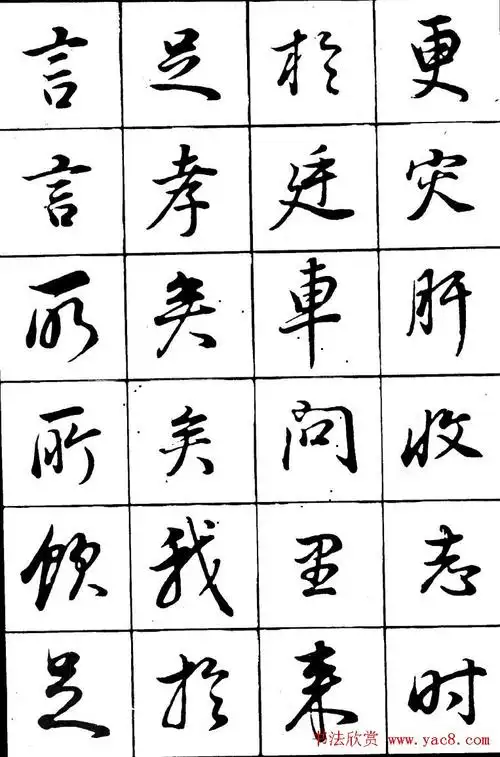 言言所所飲足
足孝矣矣我於
於廷車問里来
更灾肝收志时
书法欣赏 www.yac8.com